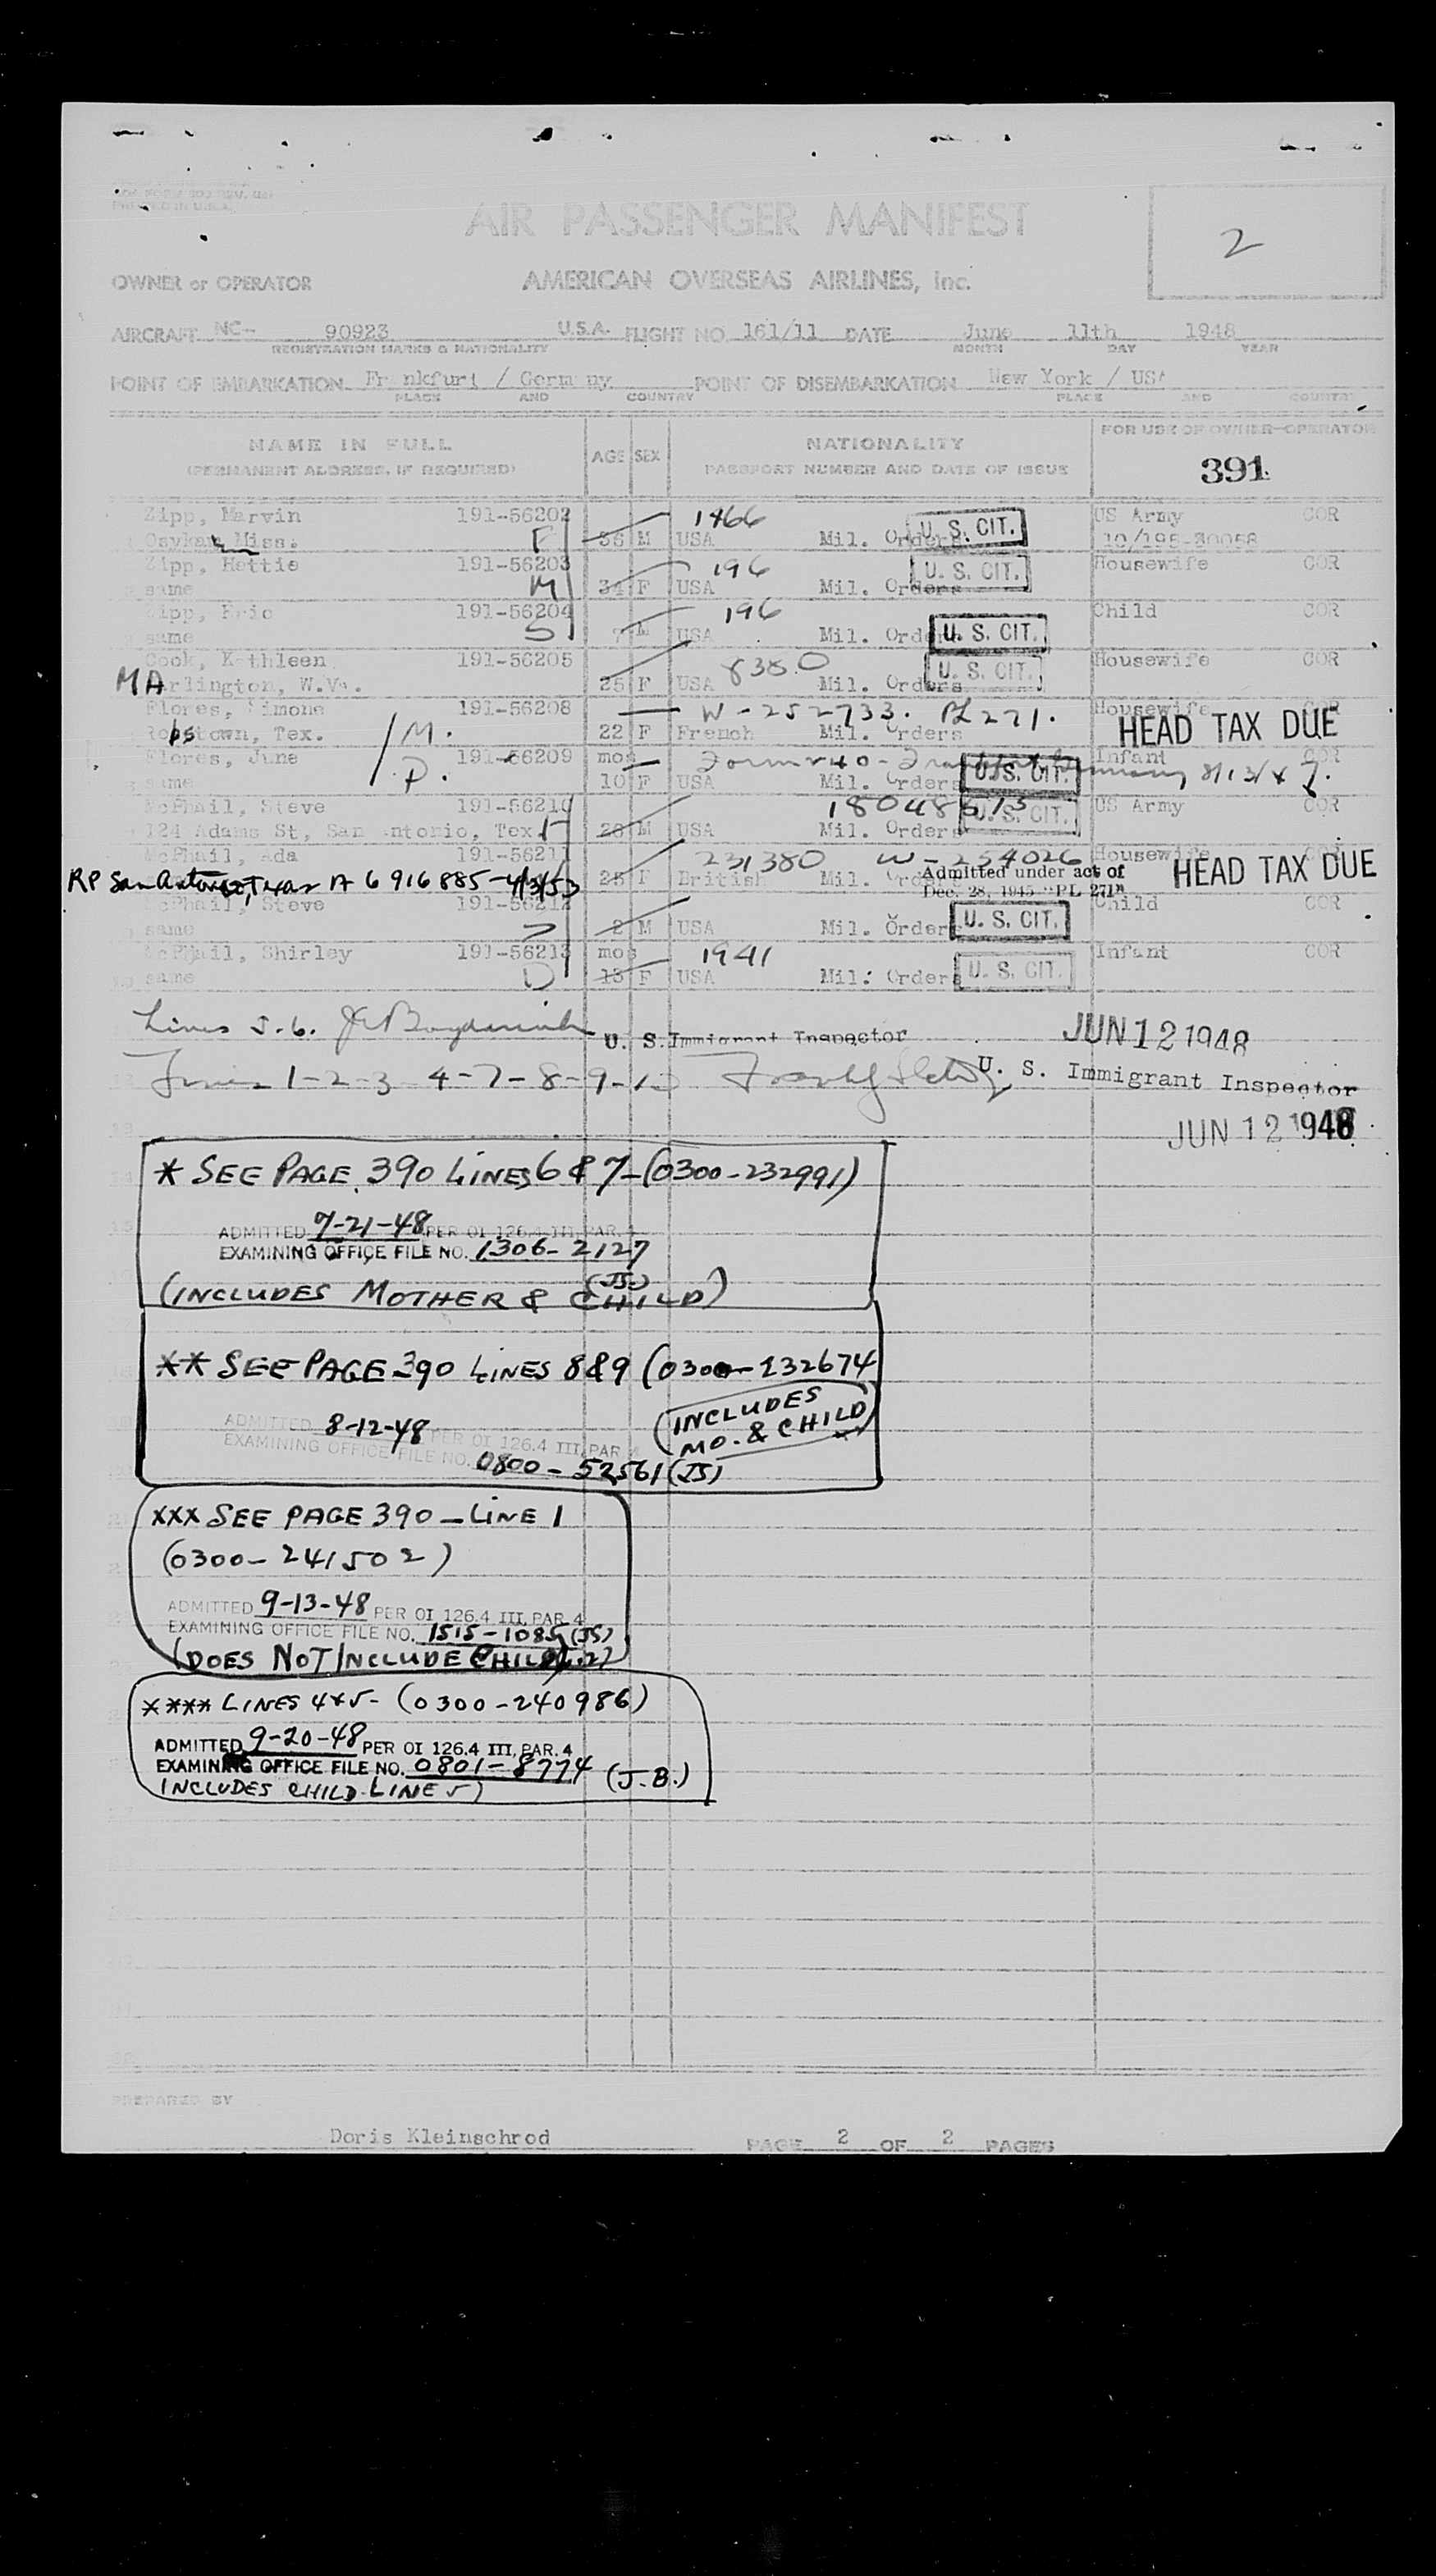 PRINTED IN U.S.A.
AIR PASSENGER MANIFEST
2
OWNER or OPERATOR AMERICAN OVERSEAS AIRLINES, Inc.
AIRCRAFT NC- 90923 U.S.A. FLIGHT NO. 161/11 DATE June 11th 1948
REGISTRATION MARKS & NATIONALITY MONTH DAY YEAR
POINT OF EMBARKATION Frankfurt / Germany POINT OF DISEMBARKATION New York / USA
PLACE AND COUNTRY PLACE AND COUNTRY
NAME IN FULL AGE SEX NATIONALITY FOR USE OF OWNER-OPERATOR
(PERMANENT ADDRESS, IF REQUIRED) PASSPORT NUMBER AND DATE OF ISSUE 391
Zipp, Marvin 191-56202 1466 US Army COR
Osyka, Miss. F 36 M USA Mil. Orders U. S. CIT. 10/195-80058
Zipp, Hettie 191-56203 196 Housewife COR
same M 34 F USA Mil. Orders U. S. CIT.
Zipp, Eric 191-56204 196 Child COR
same S 7 M USA Mil. Orders U. S. CIT.
Cook, Kathleen 191-56205 8380 Housewife COR
MA rlington, W.Va. 25 F USA Mil. Orders U. S. CIT.
Flores, Simone 191-56208 W-252733. PL 271. Housewife COR
Robstown, Tex. M. 22 F French Mil. Orders HEAD TAX DUE
Flores, June 191-56209 mos Infant COR
same D. 10 F USA Mil. Orders U. S. CIT.
McPhail, Steve 191-56210 18048613 US Army COR
124 Adams St, San Antonio, Tex. F 28 M USA Mil. Orders U. S. CIT.
McPhail, Ada 191-56211 231380 W-254026 Housewife
RP San Antonio, Texas A 6 916 885-4/3/53 25 F British Mil. Orders Admitted under act of HEAD TAX DUE
Dec. 28, 1945 "PL 271"
McPhail, Steve 191-56212 Child COR
same 2 M USA Mil. Orders U. S. CIT.
McPhail, Shirley 191-56213 mos 1941 Infant COR
same D 13 F USA Mil. Orders U. S. CIT.
Lines 5.6. U. S. Immigrant Inspector JUN 12 1948
Lines 1-2-3 4-7-8-9-10 U. S. Immigrant Inspector
JUN 12 1948
* SEE PAGE 390 LINES 6 & 7-(0300-232991)
ADMITTED 7-21-48 PER OI 126.4 III, PAR. 4
EXAMINING OFFICE FILE NO. 1306-2127
(JS)
(INCLUDES MOTHER & CHILD)
** SEE PAGE 390 LINES 8&9 (0300-232674
ADMITTED 8-12-48 PER OI 126.4 III, PAR 4 (INCLUDES MO. & CHILD)
EXAMINING OFFICE FILE NO. 0800-52561 (JS)
XXX SEE PAGE 390 - LINE 1
(0300-241502)
ADMITTED 9-13-48 PER OI 126.4 III, PAR 4
EXAMINING OFFICE FILE NO. 1515-1085 (JS)
(DOES NOT INCLUDE CHILD L.2)
**** LINES 4*5- (0300-240986)
ADMITTED 9-20-48 PER OI 126.4 III, PAR. 4
EXAMINING OFFICE FILE NO. 0801-8774 (J.B.)
INCLUDES CHILD-LINE 5)
PREPARED BY
Doris Kleinschrod PAGE 2 OF 2 PAGES